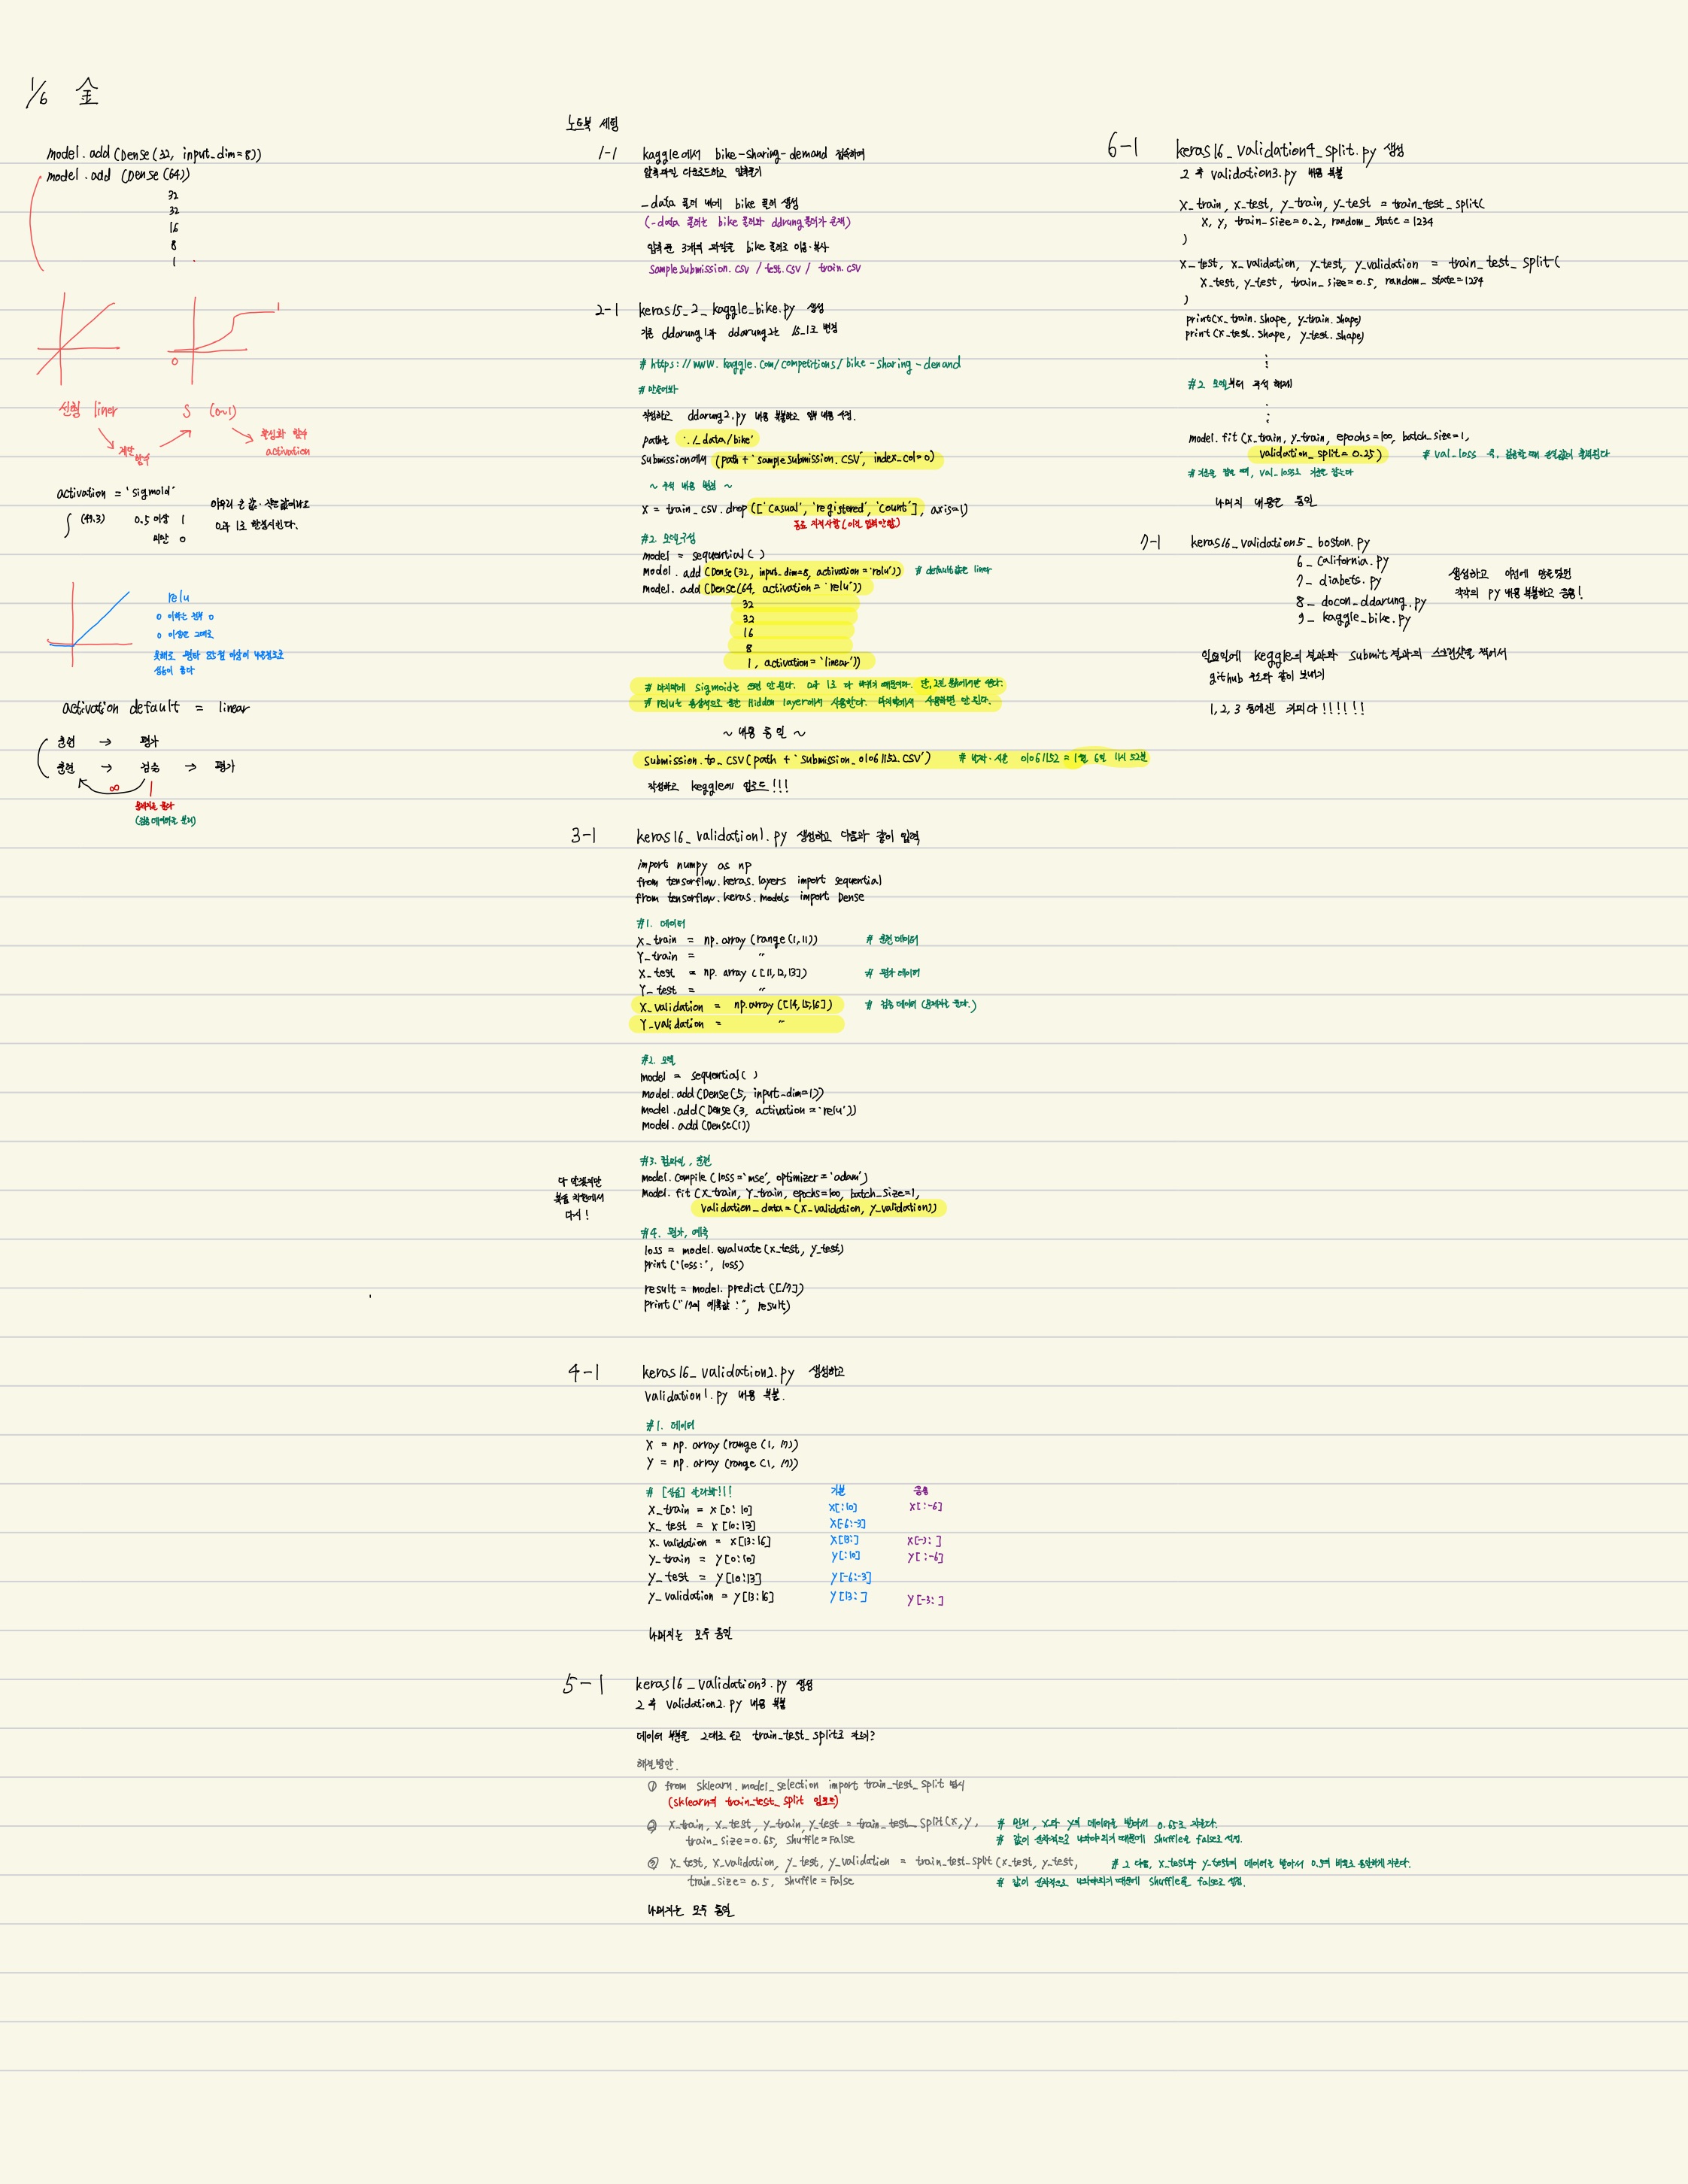 1/6 金
model.add(Dense(32, input_dim=8))
model.add(Dense(64))
32
32
16
8
1
1
0
선형 liner
S (0~1)
계단
함수
활성화 함수
activation
activation = 'sigmoid'
(49.3) 0.5 이상 1
미만 0
0과 1로 한정시킨다.
relu
0 이하는 전부 0
0 이상은 그대로
못해도 평타 85점 이상이 나올정도로
성능이 좋다
activation default = linear
훈련 → 평가
훈련 → 검증 → 평가
∞
문제지를 푼다
(검증 데이터로 분리)
노트북 세팅
1-1 kaggle에서 bike-sharing-demand 접속하여
압축파일 다운로드하고 압축풀기
_data 폴더 내에 bike 폴더 생성
(_data 폴더는 bike 폴더와 ddrung폴더가 존재)
압축푼 3개의 파일을 bike 폴더로 이동·복사
Samplesubmission.csv / test.csv / train.csv
2-1 keras15_2_kaggle_bike.py 생성
기존 ddarung1과 ddarung2는 15_1로 변경
# https://www.kaggle.com/competitions/bike-sharing-demand
# 만들어봐
작성하고 ddarung2.py 내용 복붙하고 일부 내용 수정.
path는 './_data/bike'
Submission에서 (path + 'samplesubmission.CSV', index_col=0)
~ 주석 내용 변경 ~
X = train_csv.drop(['Casual', 'registered', 'count'], axis=1)
#2. 모델구성
model = sequential( )
model.add(Dense(32, input_dim=8, activation='relu')) # default값은 liner
model.add(Dense(64, activation='relu'))
32
32
16
8
1, activation='linear'))
# 마지막에 sigmoid는 쓰면 안 된다. 0과 1로 다 바뀌기 때문이다. 단, 2진 분류에서만 쓴다.
# relu는 통상적으로 중간 Hidden layer에서 사용한다. 마지막에서 사용하면 안 된다.
~ 내용 동일 ~
Submission.to_CSV(path + 'submission_01061152.CSV') # 날짜·시간 01061152 = 1월 6일 11시 52분
작성하고 keggle에 업로드!!!
3-1 keras16_validation1.py 생성하고 다음과 같이 입력
import numpy as np
from tensorflow.keras.layers import sequential
from tensorflow.keras.models import Dense
#1. 데이터
X_train = np.array(range(1,11)) # 훈련 데이터
Y_train = "
X_test = np.array([11,12,13]) # 평가 데이터
Y_test = "
X_validation = np.array([14,15,16]) # 검증 데이터 (문제지를 푼다.)
Y_validation = "
#2. 모델
model = sequential( )
model.add(Dense(5, input_dim=1))
model.add(Dense(3, activation='relu'))
model.add(Dense(1))
#3. 컴파일, 훈련
model.compile(loss='mse', optimizer='adam')
model.fit(X_train, Y_train, epochs=100, batch_size=1,
validation_data=(X_validation, y_validation))
다 알겠지만
복습 차원에서
다시!
#4. 평가, 예측
loss = model.evaluate(x_test, y_test)
print('loss:', loss)
result = model.predict([17])
print("17의 예측값 :", result)
4-1 keras16_validation2.py 생성하고
validation1.py 내용 복붙.
#1. 데이터
X = np.array(range(1, 17))
Y = np.array(range(1, 17))
# [실습] 잘라봐!!! 기본 응용
X_train = x[0:10] x[:10] x[:-6]
X_test = x[10:13] x[-6:-3]
X_validation = x[13:16] x[13:] x[-3: ]
Y_train = y[0:10] y[:10] y[:-6]
Y_test = y[10:13] y[-6:-3]
Y_validation = y[13:16] y[13: ] y[-3: ]
나머지는 모두 동일
5-1 keras16_validation3.py 생성
그 후 validation2.py 내용 복붙
데이터 부분을 그대로 두고 train_test_split로 자르기?
해결방안.
① from sklearn.model_selection import train_test_split 명시
(sklearn의 train_test_split 임포트)
② X_train, X_test, Y_train, Y_test = train_test_split(x,y, # 먼저, x와 y의 데이터를 받아서 0.65로 자른다.
train_size=0.65, shuffle=False # 값이 순차적으로 나와야되기 때문에 shuffle을 false로 설정.
③ X_test, X_validation, y_test, y_validation = train_test_split(x_test, y_test, # 그 다음, x_test와 y_test의 데이터를 받아서 0.5의 비율로 동일하게 자른다.
train_size=0.5, shuffle=False # 값이 순차적으로 나와야되기 때문에 shuffle을 false로 설정.
나머지는 모두 동일
6-1 keras16_validation4_split.py 생성
그 후 validation3.py 내용 복붙
X_train, x_test, y_train, y_test = train_test_split(
X, y, train_size=0.2, random_state=1234
)
X_test, x_validation, y_test, y_validation = train_test_split(
X_test, y_test, train_size=0.5, random_state=1234
)
print(x_train.shape, y_train.shape)
print(x_test.shape, y_test.shape)
#2 모델부터 주석 해제
model.fit(x_train, y_train, epochs=100, batch_size=1,
validation_split=0.25)
# 기준을 잡을 때, val_loss로 기준을 잡는다
나머지 내용은 동일
7-1 keras16_validation5_boston.py
6_california.py
7_diabets.py
8_dacon_ddarung.py
9_kaggle_bike.py
각각의 py 내용 복붙하고 응용!
일요일에 keggle의 결과와 submit 결과의 스크린샷을 찍어서
github 주소와 같이 보내기
1, 2, 3 등에겐 커피다!!!!!!